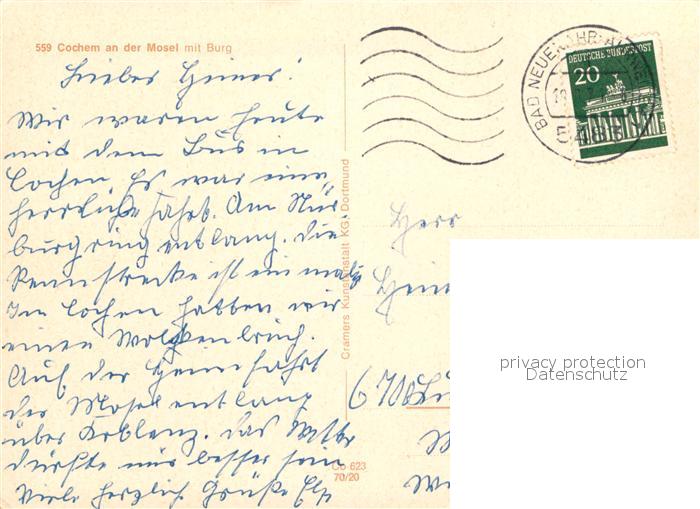 559 Cochem an der Mosel mit Burg
Lieber Heiner!
Wir waren heute
mit dem Bus in
Cochem. Es war eine
herrliche Fahrt. Am Nür-
burgring entlang. Die
Rennstrecke ist einmalig
Im Cochem hatten wir
einen Wolkenbruch.
Auf der Heimfahrt
der Mosel entlang
über Koblenz. Das Wetter
dürfte nur besser sein
Viele herzliche Grüße
Cramers Kunstanstalt KG, Dortmund
Co 623
70/20
BAD NEUENAHR-
DEUTSCHE BUNDESPOST
20
Herr
6700
privacy protection
Datenschutz